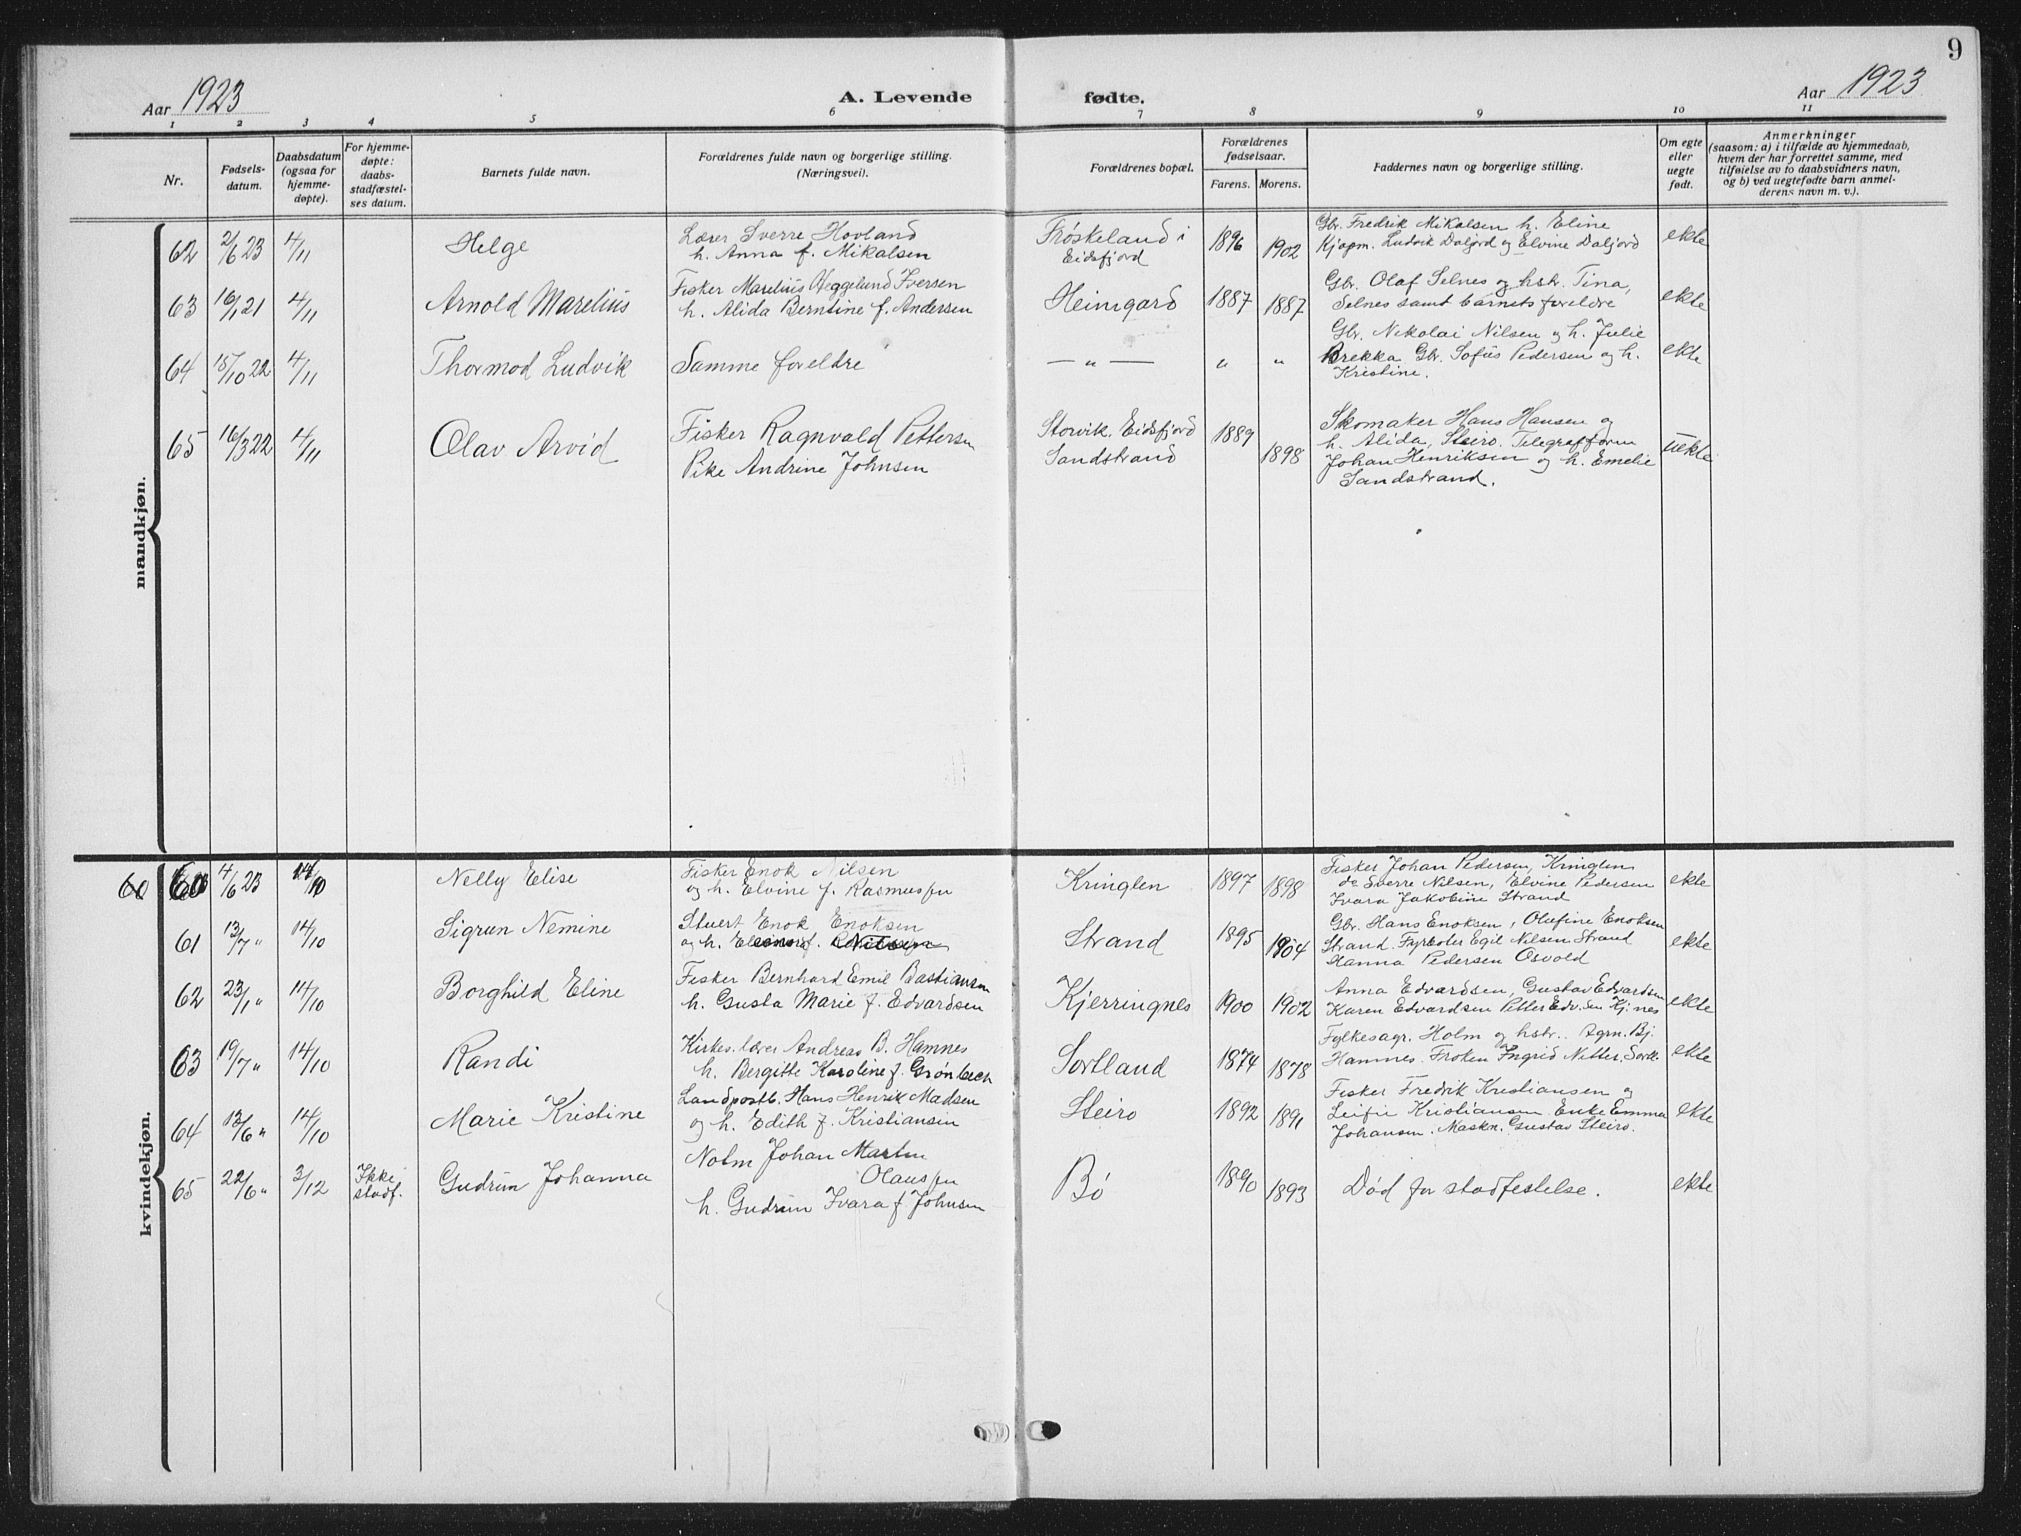 9
Aar 1923
A. Levende fødte.
Aar 1923
1 2 3 4 5 6 7 8 9 10 11
Nr.
Fødsels-
datum.
Daabsdatum
(ogsaa for
hjemme-
døpte).
For hjemme-
døpte:
daabs-
stadfæstel-
ses datum.
Barnets fulde navn.
Forældrenes fulde navn og borgerlige stilling.
(Næringsvei).
Forældrenes bopæl.
Forældrenes
fødselsaar.
Farens. Morens.
Faddernes navn og borgerlige stilling.
Om egte
eller
uegte
født.
Anmerkninger
(saasom: a) i tilfælde av hjemmedaab,
hvem der har forrettet samme, med
tilføielse av to daabsvidners navn,
og b) ved uegtefødte barn anmel-
derens navn m. v.).
mandkjøn.
62 2/6 23 4/11 Helge
Lærer Sverre Hovland
h. Anna f. Mikalsen
Frøskeland i
Eidsfjord
1896 1902
Gbr. Fredrik Mikalsen h. Eline
Kjøpm. Ludvik Daljord og Elvine Daljord
ekte
63 16/1 21 4/11 Arnold Marelius
Fisker Marelius Heggelund Iversen
h. Alida Berntine f. Andersen
Heimgard 1887 1887
Gbr. Olaf Selnes og hstr. Tina,
Selnes samt barnets foreldre
ekte
64 15/10 22 4/11 Thormod Ludvik
Samme foreldre
— " — " "
Gbr. Nikolai Nilsen og h. Julie
Brekka Gbr. Sofus Pedersen og h.
Kristine.
ekte
65 16/3 22 4/11 Olav Arvid
Fisker Ragnvald Pettersen
Pike Andrine Johnsen
Storvik. Eidsfjord
Sandstrand
1889 1898
Skomaker Hans Hansen og
h. Alida, Steiro. Telegrafform
Johan Henriksen og h. Emelie
Sandstrand.
uekte
kvindekjøn.
60 60 4/6 23 14/10 Nelly Elise
Fisker Enok Nilsen
og h. Elvine f. Rasmussen
Kringlen 1897 1898
Fisker Johan Pedersen, Kringlen
do Sverre Nilsen, Elvine Pedersen
Ivara Jakobine Strand
ekte
61 13/7 " 14/10 Sigrun Nemine
Stuert Enok Enoksen
og h. f. Nilsen
Strand 1895 1904
Gbr. Hans Enoksen, Olufine Enoksen
Strand. Fyrbøter Egil Nilsen Strand
Hanna Pedersen Osvold
ekte
62 23/1 " 14/10 Borghild Eline
Fisker Bernhard Emil Bastiansen
h. Gusta Marie f. Edvardsen
Kjerringnes 1900 1902
Anna Edvardsen, Gustav Edvardsen
Karen Edvardsen Petter Edv.sen Kj.nes
ekte
63 19/7 " 14/10 Randi
Kirkes. lærer Andreas B. Hamnes
h. Bergitte Karoline f. Grønbech
Sortland 1874 1878
Fylkesagr. Holm og hstr. Agrn. Bj.
Hamnes. Frøken Ingrid Nitter. Sortl.
ekte
64 13/6 " 14/10 Marie Kristine
Landpostb. Hans Henrik Madsen
og h. Edith f. Kristiansen
Steiro 1892 1891
Fisker Fredrik Kristiansen og
Leifie Kristiansen. Enke Emma
Johansen. Maskn. Gustav Steiro.
ekte
65 22/6 " 3/12 Ikke
stadf.
Gudrun Johanna
Notm Johan Martin
Olaussen
h. Gudrun Ivara f. Johnsen
Bø 1890 1893
Død før stadfestelse.
ekte